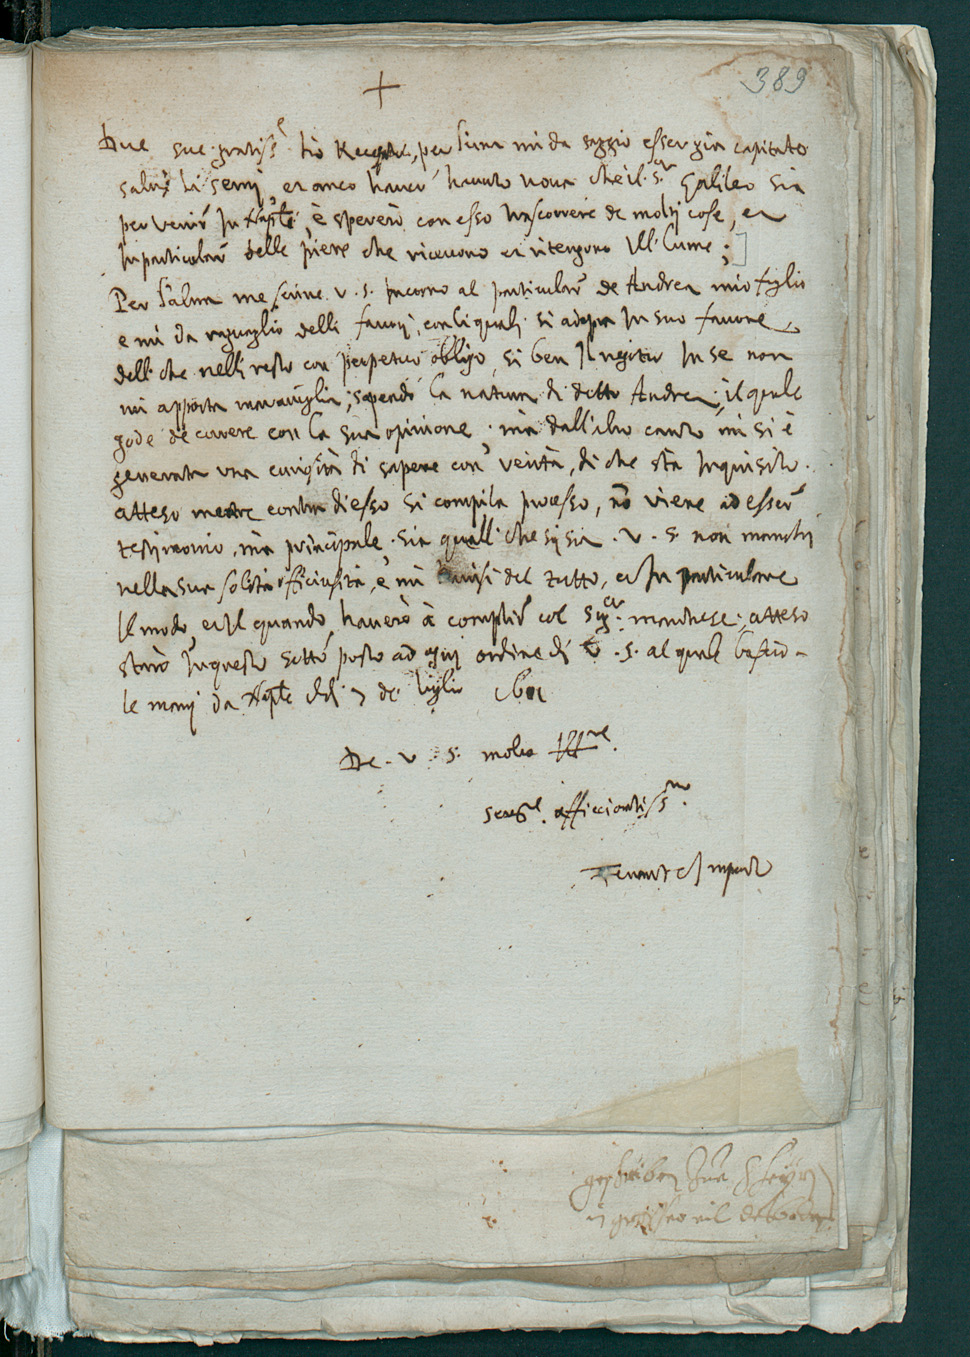 389
Due sue gratiss.e hò Receputo, per l'una mi da saggio esser gia capitato
salvi li semi, et anco haver havuto nova che il s.or Galileo sia
per venir In Nap.li, è sperero con esso trascorrere de molti cose, et
In particolar delle piere che riceveno et ritengono Il lume;
Per l'altra me scrive v. s. Intorno al particolar de Andrea mio figlio
e mi da raguaglio delli favori, con li quali si adopra In suo favore
delli che nelli resto con perpetuo obligo, si ben Il negotio In se non
mi apporta maraviglia; sapendo la natura di detto Andrea; il quale
gode de correre con la sua opinione; mà dall'altro canto mi si è
generata una curiosità di sapere con verità, di che stà Inquisito.
atteso mentre contra di esso si compila processo, nō viene ad esser
testimonio, mà principale. sia quall che si sia. v. s. non manchi
nella sua solita officiosità, è mi avisi del tutto, et In particolare
Il modo, et Il quando, haverò à complir col Sig.or marchese; atteso
starò In questo sotto posto ad ogni ordine di v. s. al quale bascio
le mani da Nap.le di 7 de luglio
De. v. s. molto Ill.re
ser.re affecionatiss.mo
Ferrante Imperato